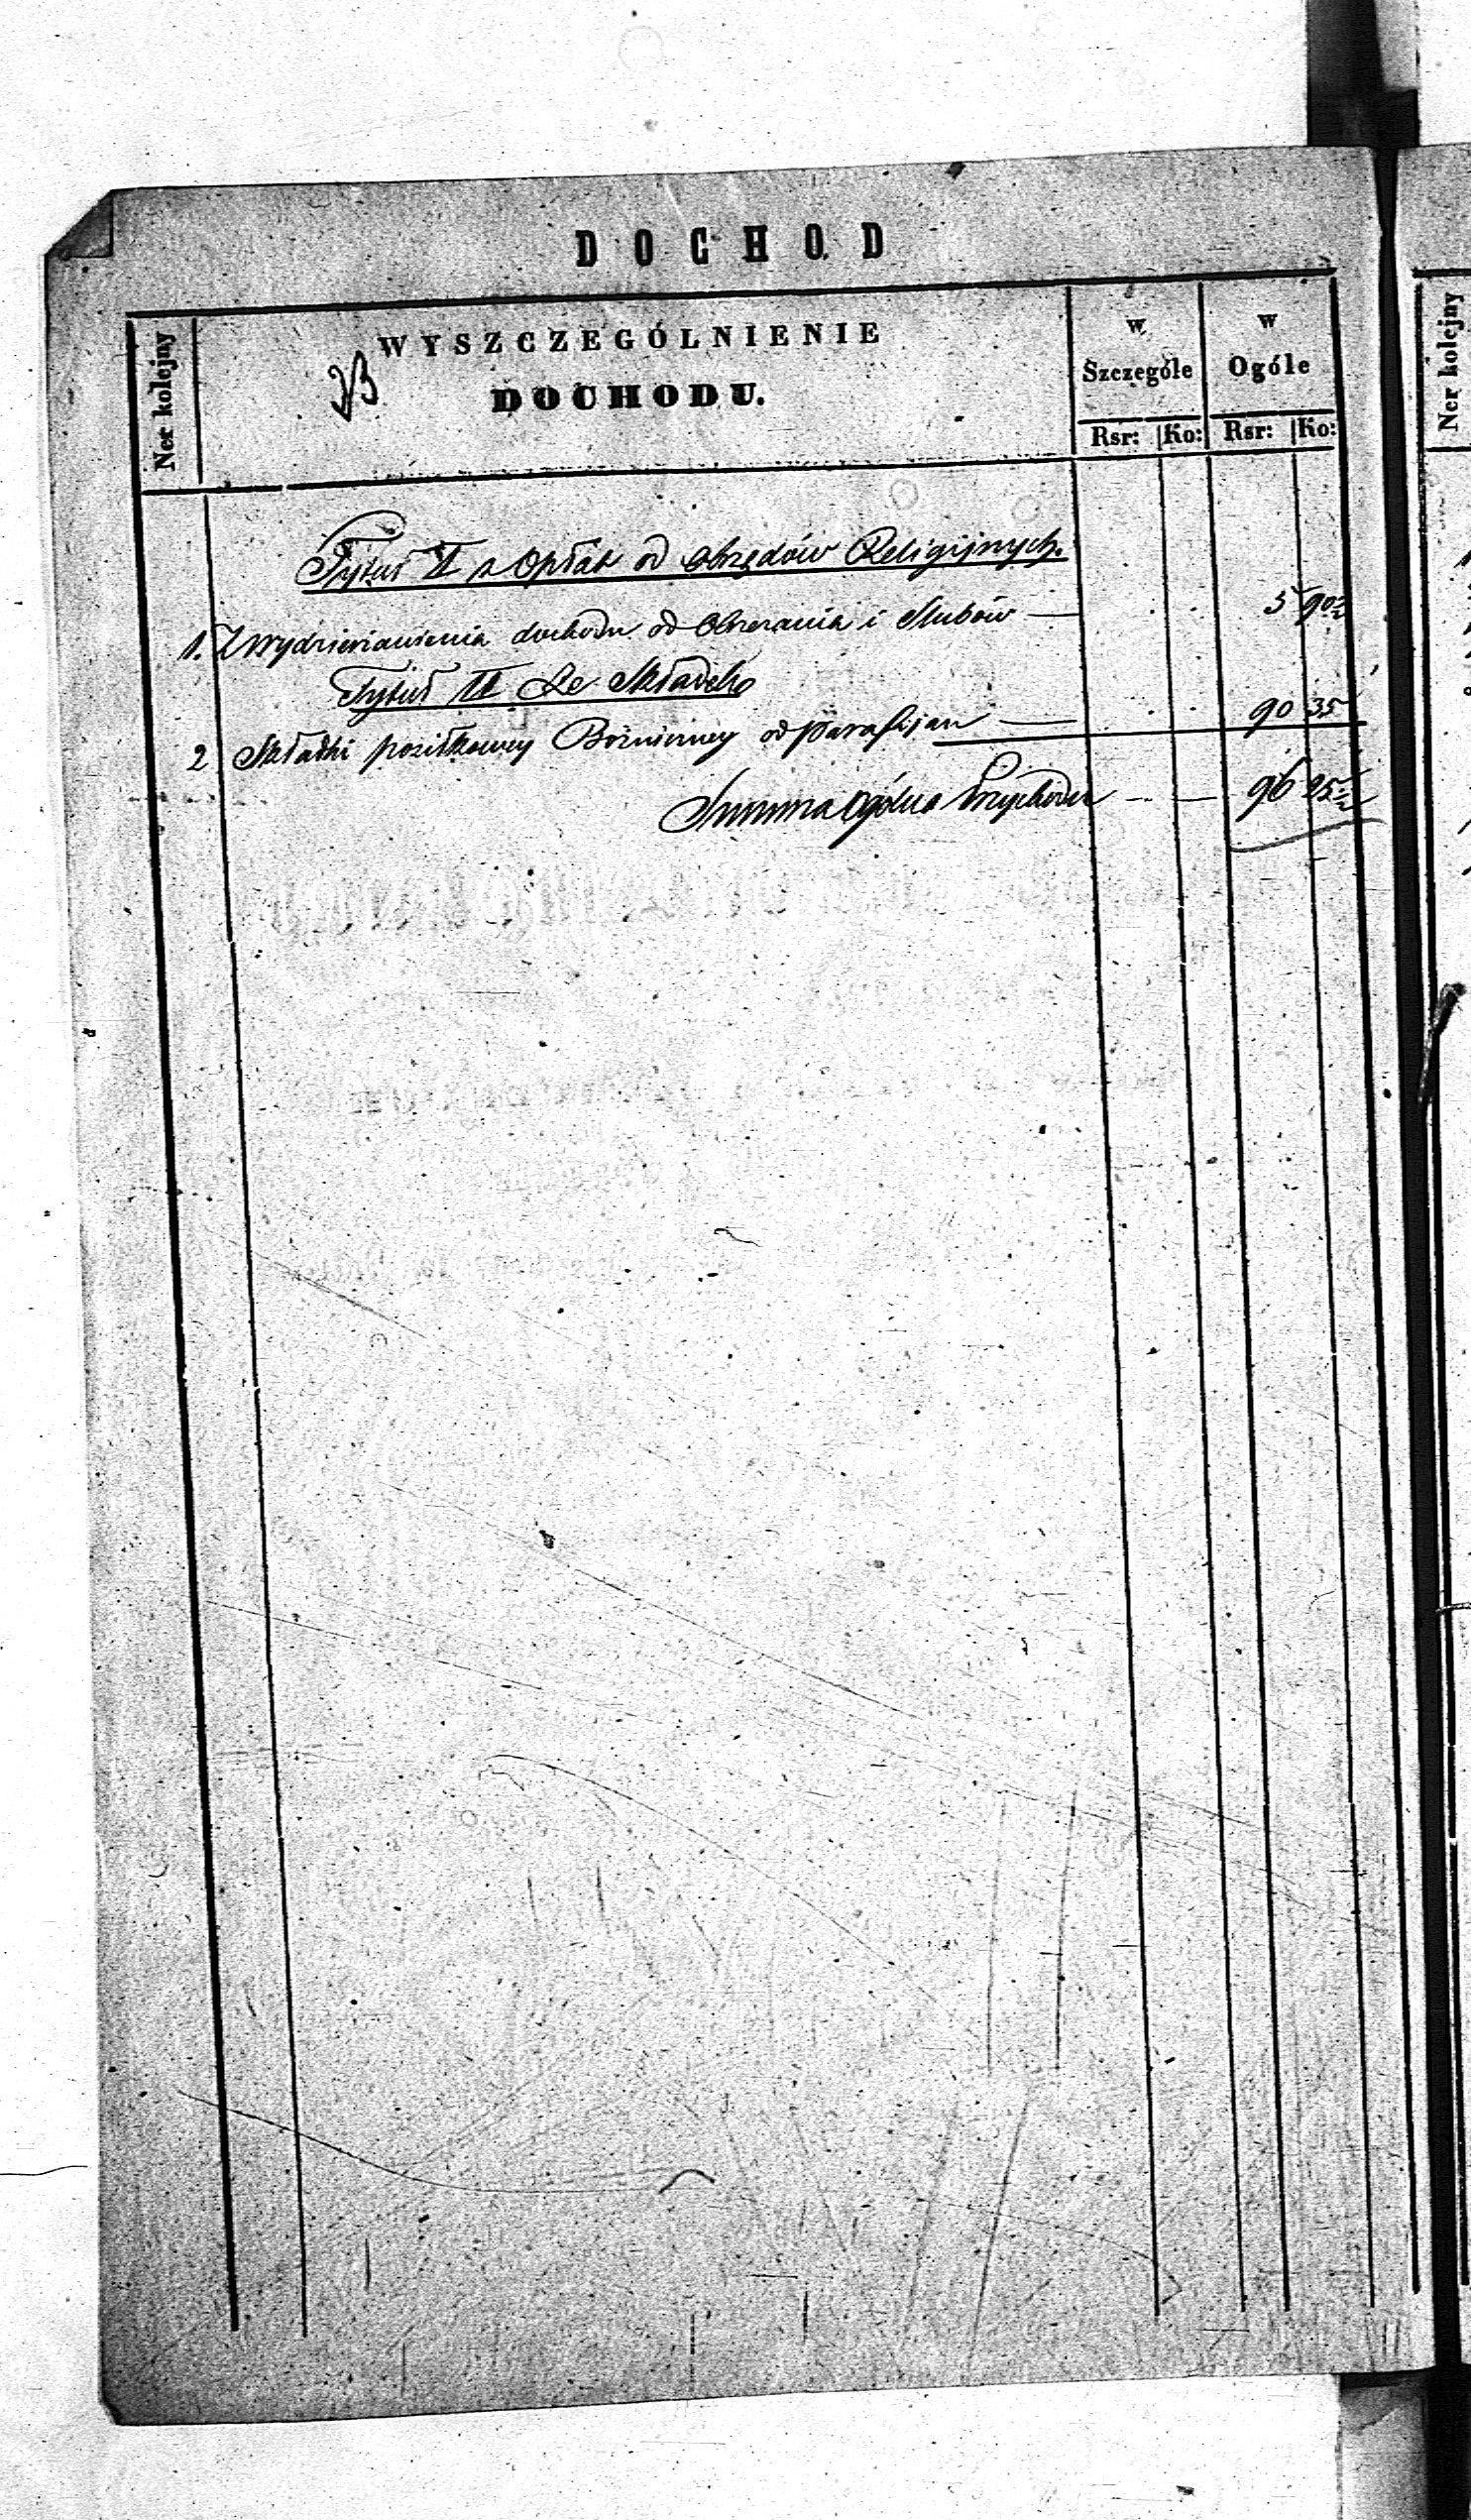 DOCHOD
Ner kolejny
WYSZCZEGÓLNIENIE
DOCHODU.
w Szczególe
w Ogóle
Rsr: Ko: Rsr: Ko:
Tytuł II z Opłat od Obrzędów Religijnych.
1. Z wydzierżawienia dochodu od Obrzezania i Slubów — 5 90
Tytuł III Ze Składek
2 Składki posiłkowey Bożniczney od Parafijan — 90 35
Summa Ogólna Przychodu — 96 25
Ner kolejny